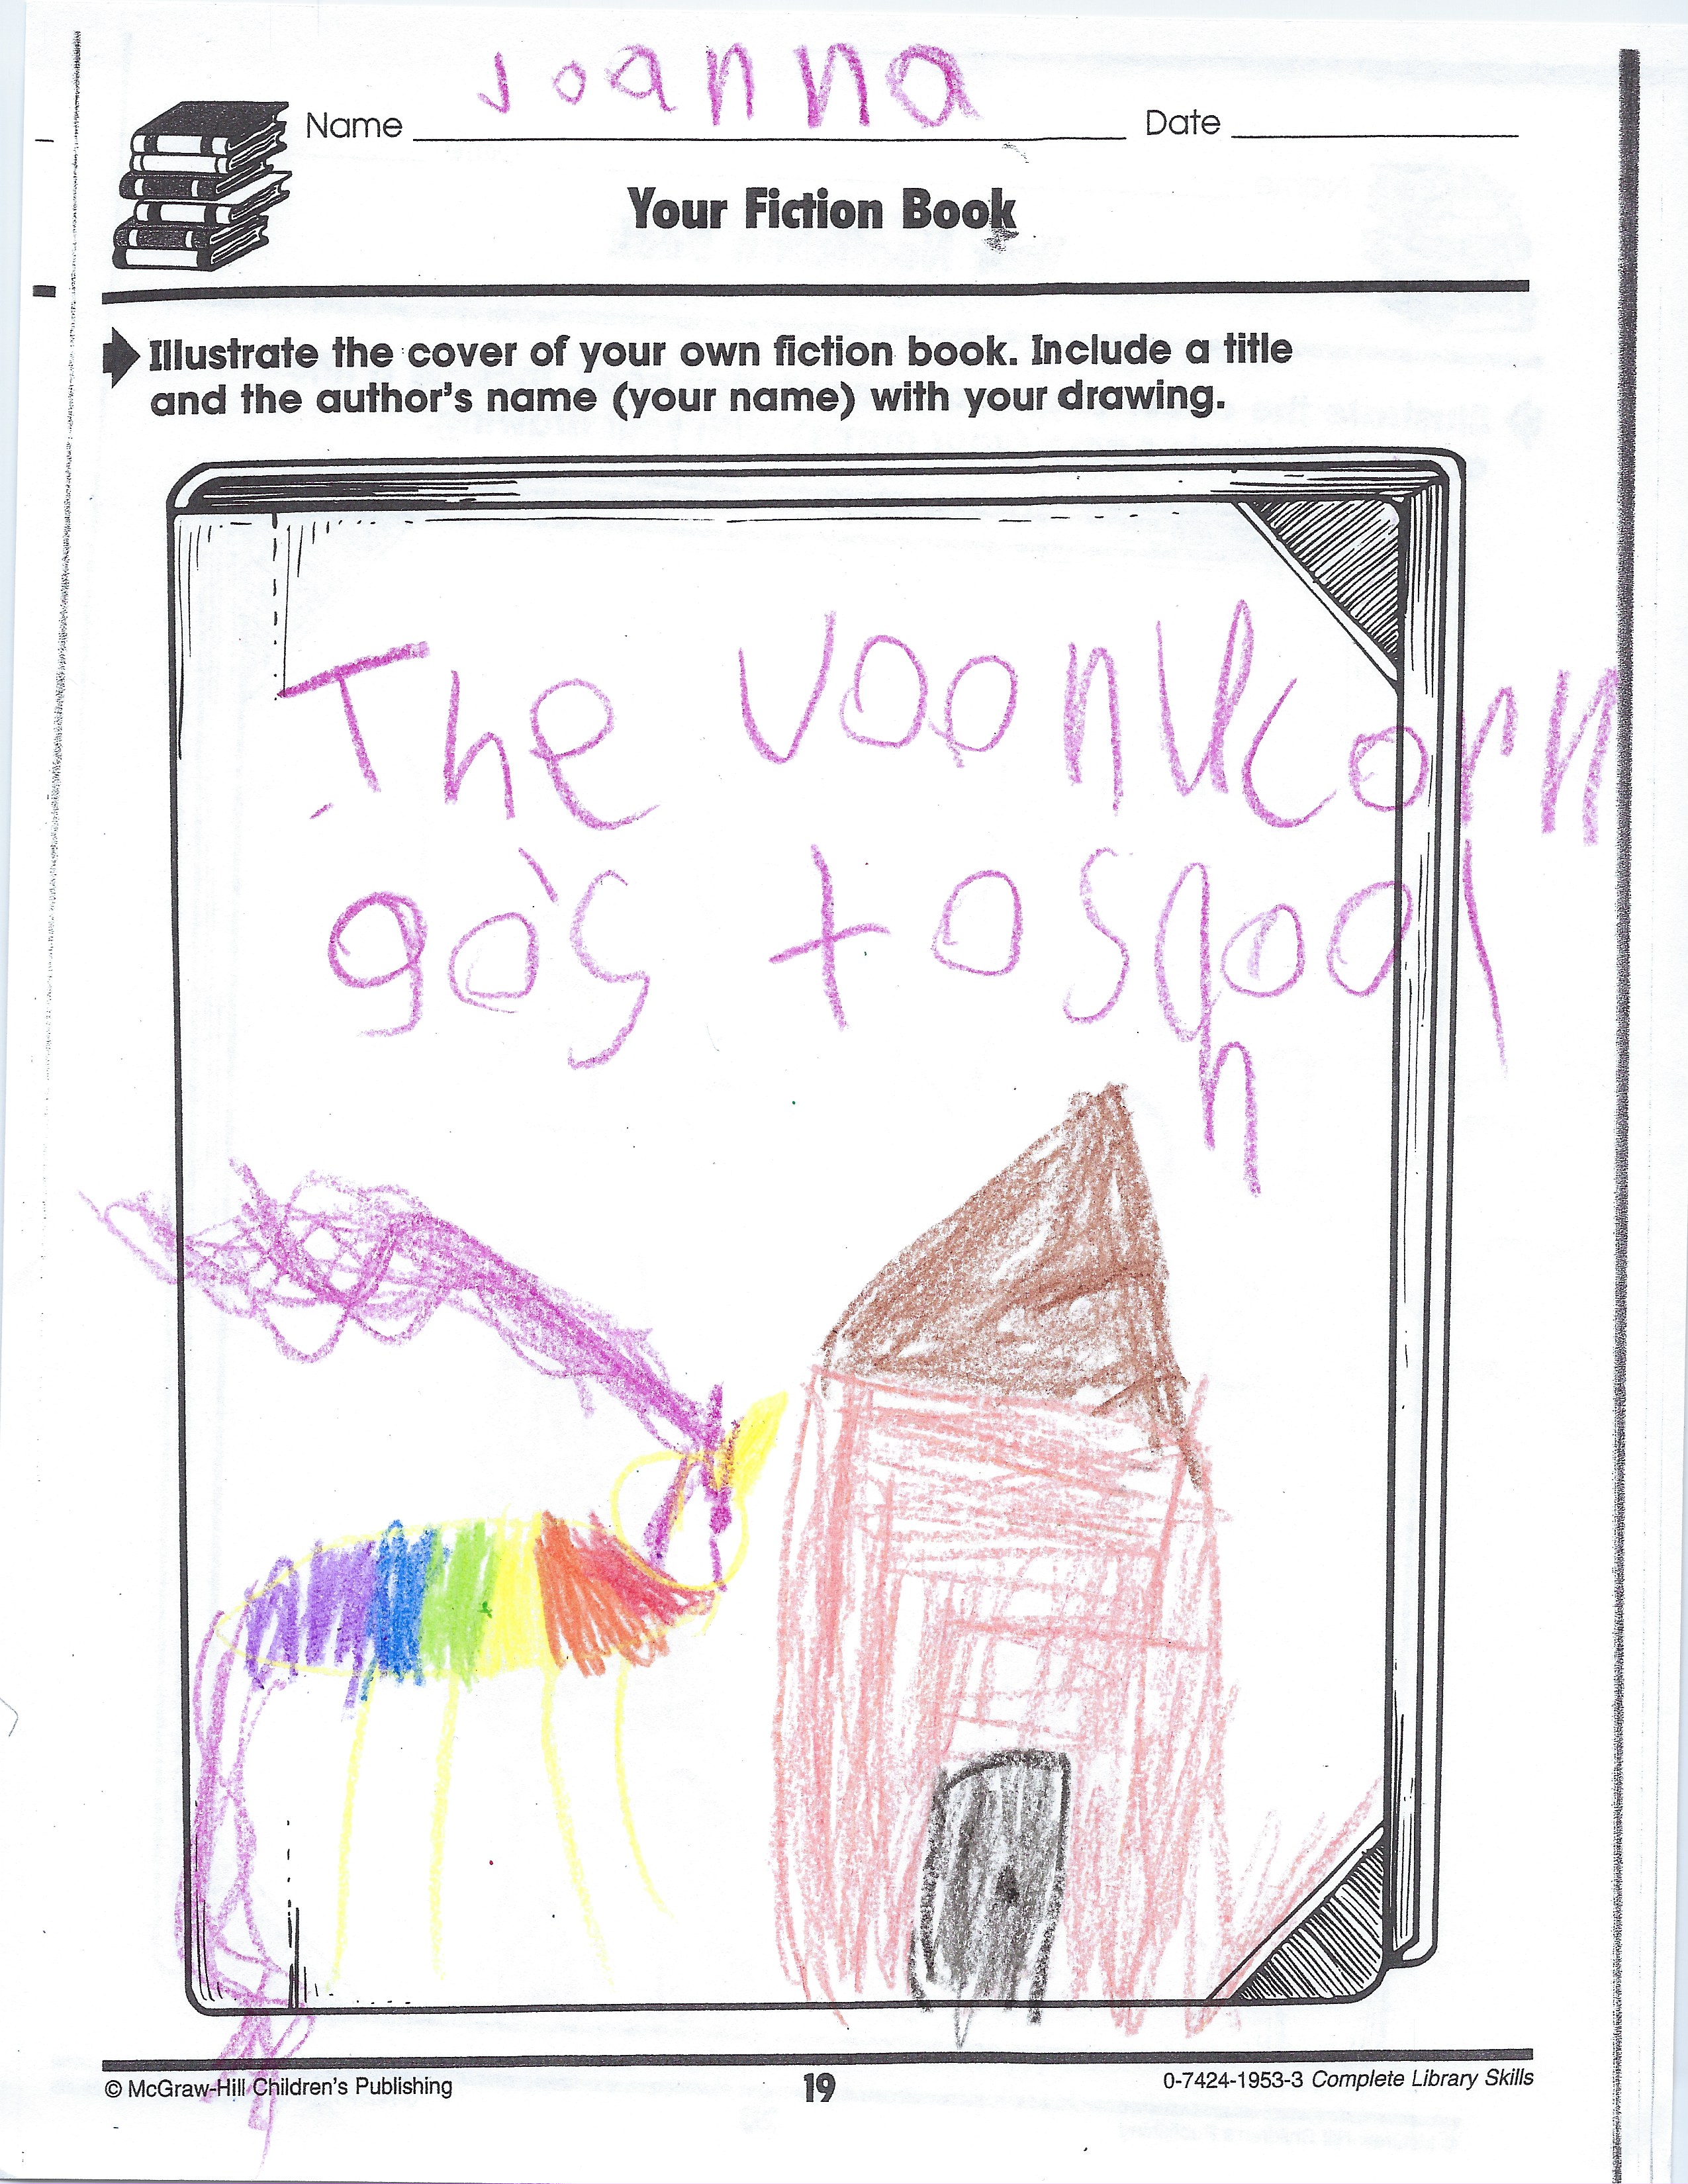 Joanna
Name Date
Your Fiction Book
Illustrate the cover of your own fiction book. Include a title
and the author's name (your name) with your drawing.
The Uoonicorn
go's to School
© McGraw-Hill Children's Publishing 19 0-7424-1953-3 Complete Library Skills